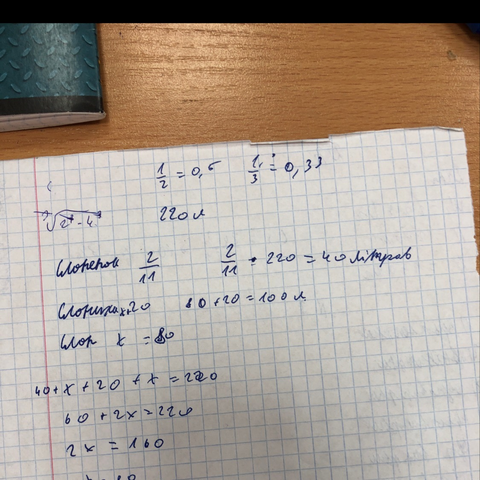 1/2 = 0,5 1/3 = 0,33
220 л
Слоненок 2/11 2/11 · 220 = 40 літрав
Слониха x+20 80+20=100 л
Слон x = 80
40+x+20+x=220
60+2x=220
2x=160